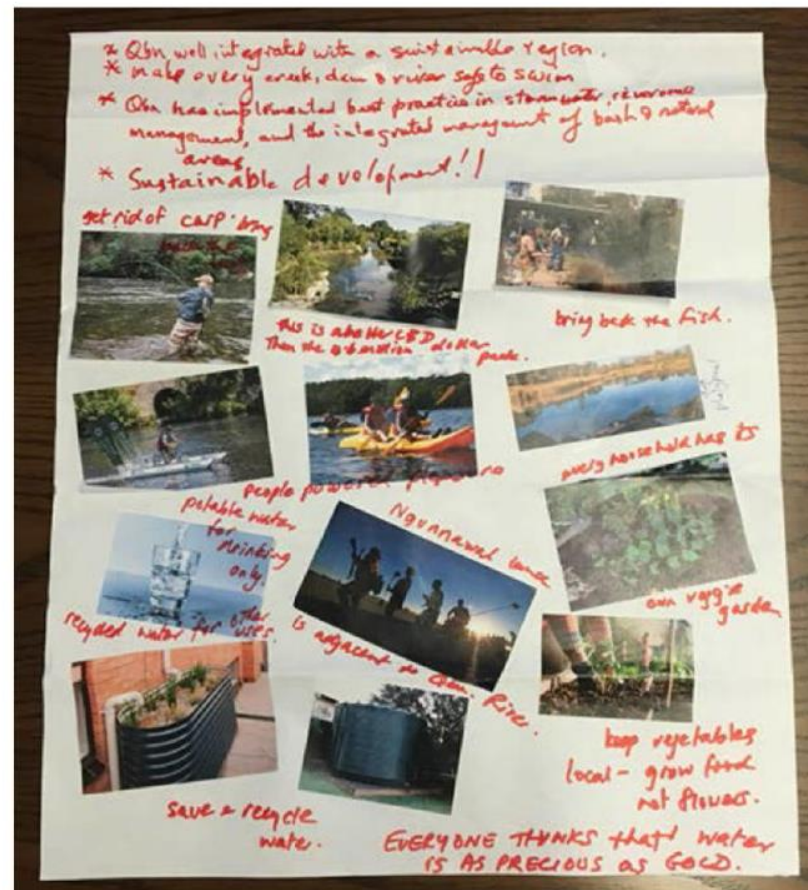 * Qbn well integrated with a sustainable region.
* make every creek, dam & river safe to swim
* Qbn has implemented best practice in stormwater,
management, and the integrated management of bush & natural
areas
* Sustainable development!!
get rid of carp. bring
back the
bring back the fish.
this is a better CBD
Then the million dollar
park.
people powered
every household has its
own veggie
garden
potable water
for
drinking
only.
recycled water for other uses.
Ngunnawal
is adjacent to Qbn. River.
keep vegetables
local - grow food
not flowers.
save & recycle
water.
EVERYONE THINKS that water
IS AS PRECIOUS as GOLD.